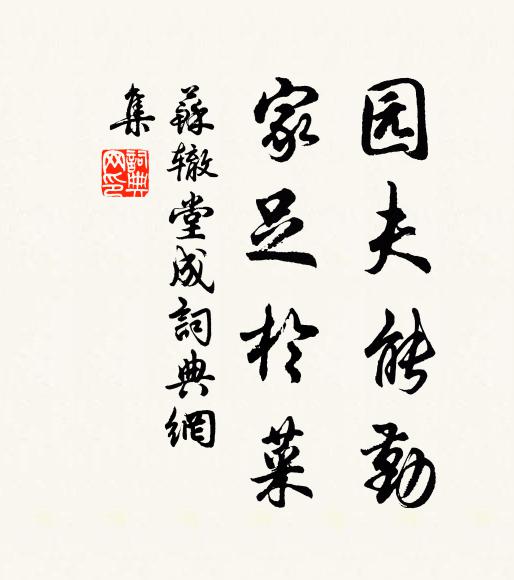 园夫能勤
家足於菜
蘇辙堂成詞典網
集
詞典
网印